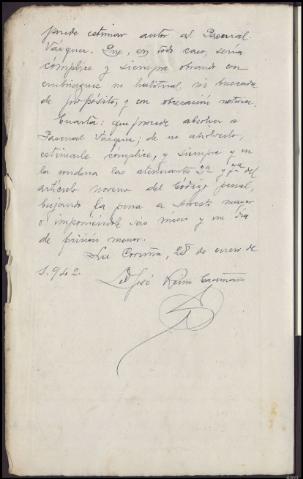 puede estimar autor al Pascual
Vázquez. Que, en todo caso, sería
cómplice y siempre obrando con
embriaguez no habitual, ni buscada
de propósito, y con obcecación notoria.
Cuarta: que procede absolver a
Pascual Vázquez, de no absolverlo,
estimarle complice, y siempre y en
la misma las atenuantes 2ª y 7ª del
artículo noveno del Código penal,
bajando la pena a arresto mayor
o imponiéndole seis meses y un dia
de prisión menor.
La Coruña, 28 de enero de
1.942.
Ldº José